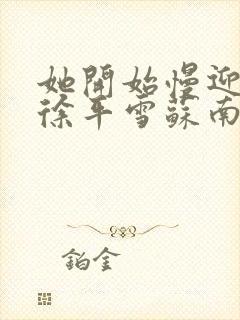 她開始慢迎
徐平雪蘇南
鉑金